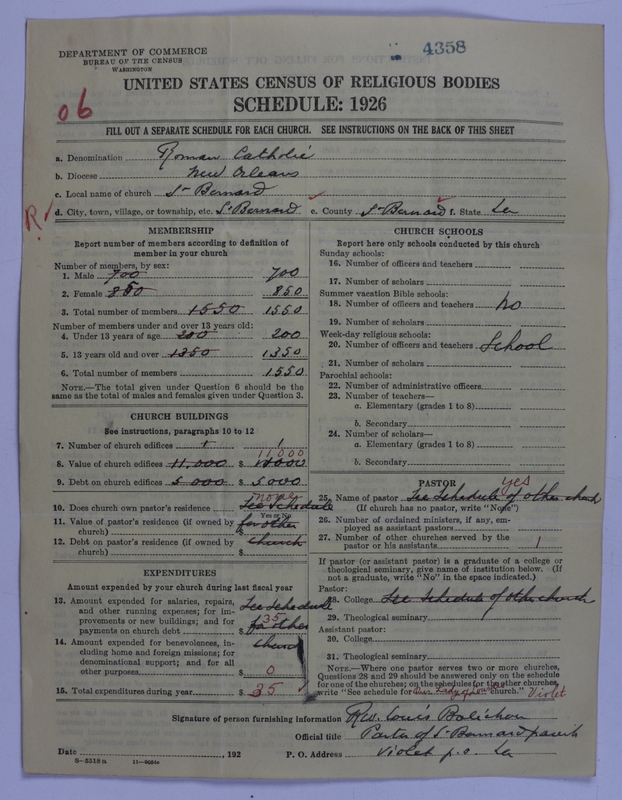 4358
DEPARTMENT OF COMMERCE
BUREAU OF THE CENSUS
WASHINGTON
UNITED STATES CENSUS OF RELIGIOUS BODIES
SCHEDULE: 1926
06
FILL OUT A SEPARATE SCHEDULE FOR EACH CHURCH. SEE INSTRUCTIONS ON THE BACK OF THIS SHEET
a. Denomination Roman Catholic
b. Diocese New Orleans
c. Local name of church St Bernard
R. d. City, town, village, or township, etc. St Bernard e. County St Bernard f. State La
MEMBERSHIP
Report number of members according to definition of
member in your church
Number of members, by sex:
1. Male 700 700
2. Female 850 850
3. Total number of members 1550 1550
Number of members under and over 13 years old:
4. Under 13 years of age 200 200
5. 13 years old and over 1350 1350
6. Total number of members 1550
NOTE.—The total given under Question 6 should be
same as the total of males and females given under Question 3.
CHURCH BUILDINGS
See instructions, paragraphs 10 to 12
7. Number of church edifices 1 1
11,000
8. Value of church edifices 11,000 $
9. Debt on church edifices 5000 $ 5000
none
10. Does church own pastor's residence See Schedule
Yes or No
11. Value of pastor's residence (if owned by for other
church) $
12. Debt on pastor's residence (if owned by church
church) $
EXPENDITURES
Amount expended by your church during last fiscal year
13. Amount expended for salaries, repairs, See Schedule
and other running expenses; for im-
provements or new buildings; and for 35
payments on church debt $ for other
14. Amount expended for benevolences, in- church
cluding home and foreign missions; for
denominational support; and for all
other purposes $ 0
15. Total expenditures during year $ 35
CHURCH SCHOOLS
Report here only schools conducted by this church
Sunday schools:
16. Number of officers and teachers
17. Number of scholars
Summer vacation Bible schools:
18. Number of officers and teachers No
19. Number of scholars
Week-day religious schools:
20. Number of officers and teachers School
21. Number of scholars
Parochial schools:
22. Number of administrative officers
23. Number of teachers—
a. Elementary (grades 1 to 8)
b. Secondary
24. Number of scholars—
a. Elementary (grades 1 to 8)
b. Secondary
PASTOR yes
25. Name of pastor See Schedule of other church
(If church has no pastor, write "None")
26. Number of ordained ministers, if any, em-
ployed as assistant pastors
27. Number of other churches served by the
pastor or his assistants 1
If pastor (or assistant pastor) is a graduate of a college or
theological seminary, give name of institution below. (If
not a graduate, write "No" in the space indicated.)
Pastor:
28. College See Schedule of other church
29. Theological seminary
Assistant pastor:
30. College
31. Theological seminary
NOTE.—Where one pastor serves two or more churches,
Questions 28 and 29 should be answered only on the schedule
for one of the churches; on the schedules for the other churches,
write "See schedule for Our Lady of Lourdes church." Violet
Signature of person furnishing information Rev. Louis
Official title Pastor of St Bernard parish
Date , 192 P. O. Address Violet p.o. La
11—9084a